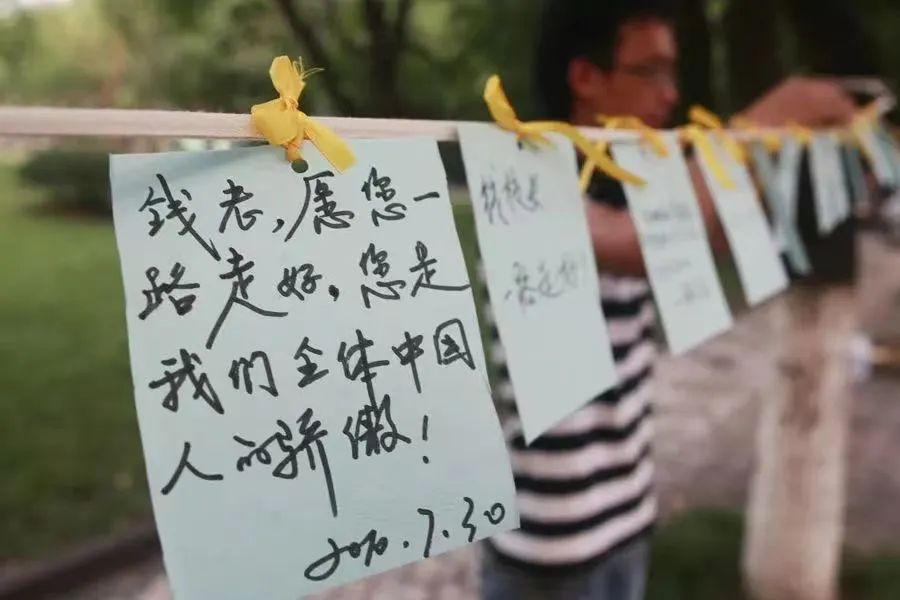 钱老,愿您一
路走好,您是
我们全体中国
人的骄傲!
2010.7.30
钱校长
走好!